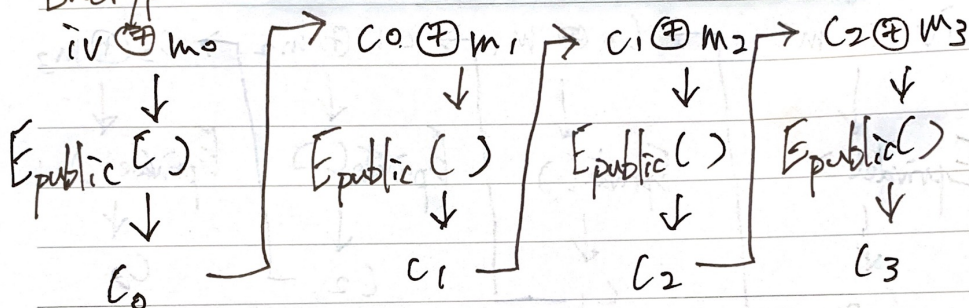 iv ⊕ m₀ → c₀ ⊕ m₁ → c₁ ⊕ m₂ → c₂ ⊕ m₃
↓ ↓ ↓ ↓
E_public( ) E_public( ) E_public( ) E_public( )
↓ ↓ ↓ ↓
c₀ c₁ c₂ c₃